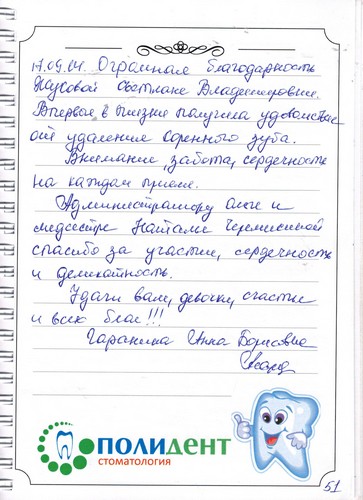 17.09.14. Огромная благодарность
Светлане Владимировне.
Впервые в жизни получила удовольствие
от удаления коренного зуба.
Внимание, забота, сердечность
на каждом приёме.
Администратору Анге и
медсестре Наталье
спасибо за участие, сердечность
и деликатность.
Удачи вам, девочки, счастья
и всех благ!!!
Гаранина Инна Борисовна
ПОЛИДЕНТ
СТОМАТОЛОГИЯ
51